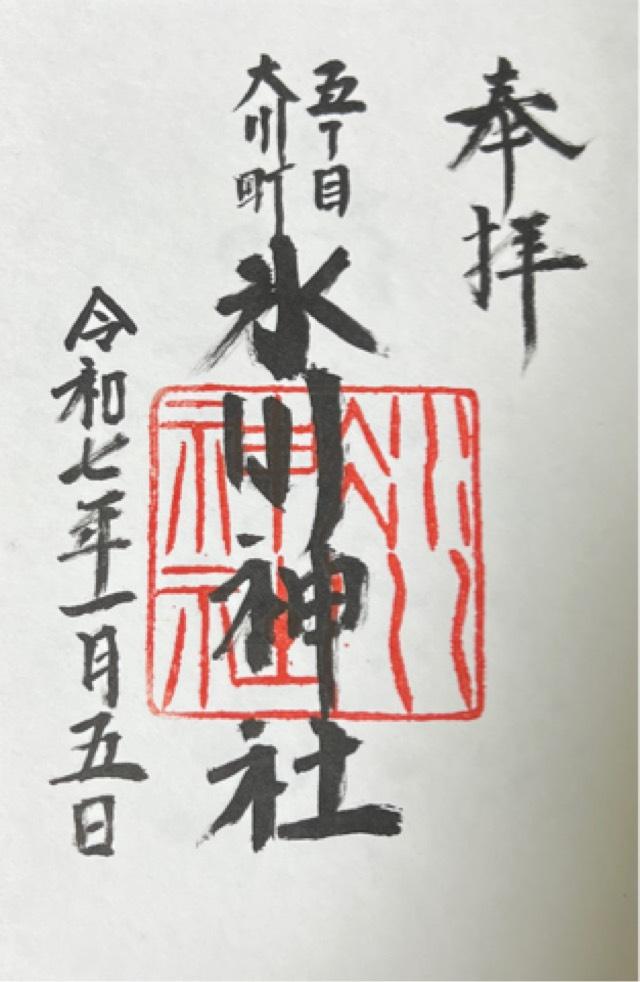 奉拝
五丁目
大川町
氷川神社
氷川
神社
令和七年一月五日